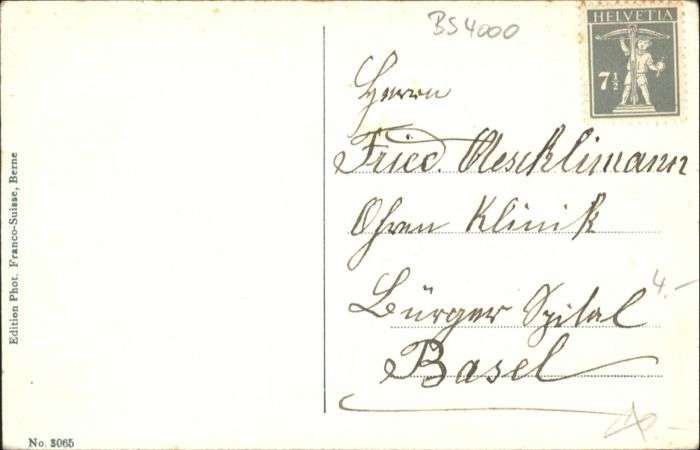 BS4000
HELVETIA
7½
Herrn
Fried. Aeschlimann
Ohren Klinik
Bürger Spital
4.-
Basel
Edition Phot. Franco-Suisse, Berne
No. 3065